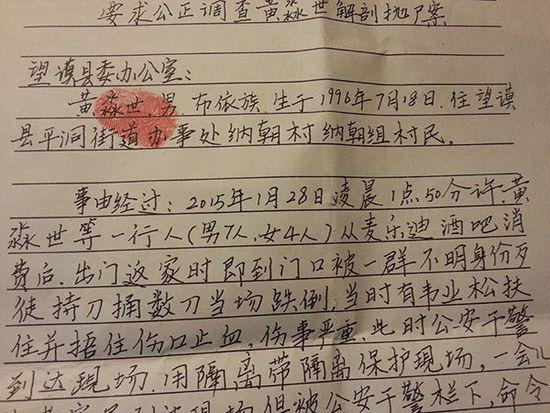 要求公正调查黄淼世解剖抛尸案
望谟县委办公室：
黄淼世、男、布依族、生于1996年7月18日、住望谟
县平洞街道办事处纳朝村纳朝组村民。
事由经过：2015年1月28日凌晨1点50分许，黄
淼世等一行人（男7人、女4人）从麦乐迪酒吧消
费后，出门返家时即到门口被一群不明身份歹
徒持刀捅数刀当场跌倒，当时有韦业松扶
住并捂住伤口止血，伤事严重，此时公安干警
到达现场，用隔离带隔离保护现场，一会儿
现场但被公安干警栏下，命令